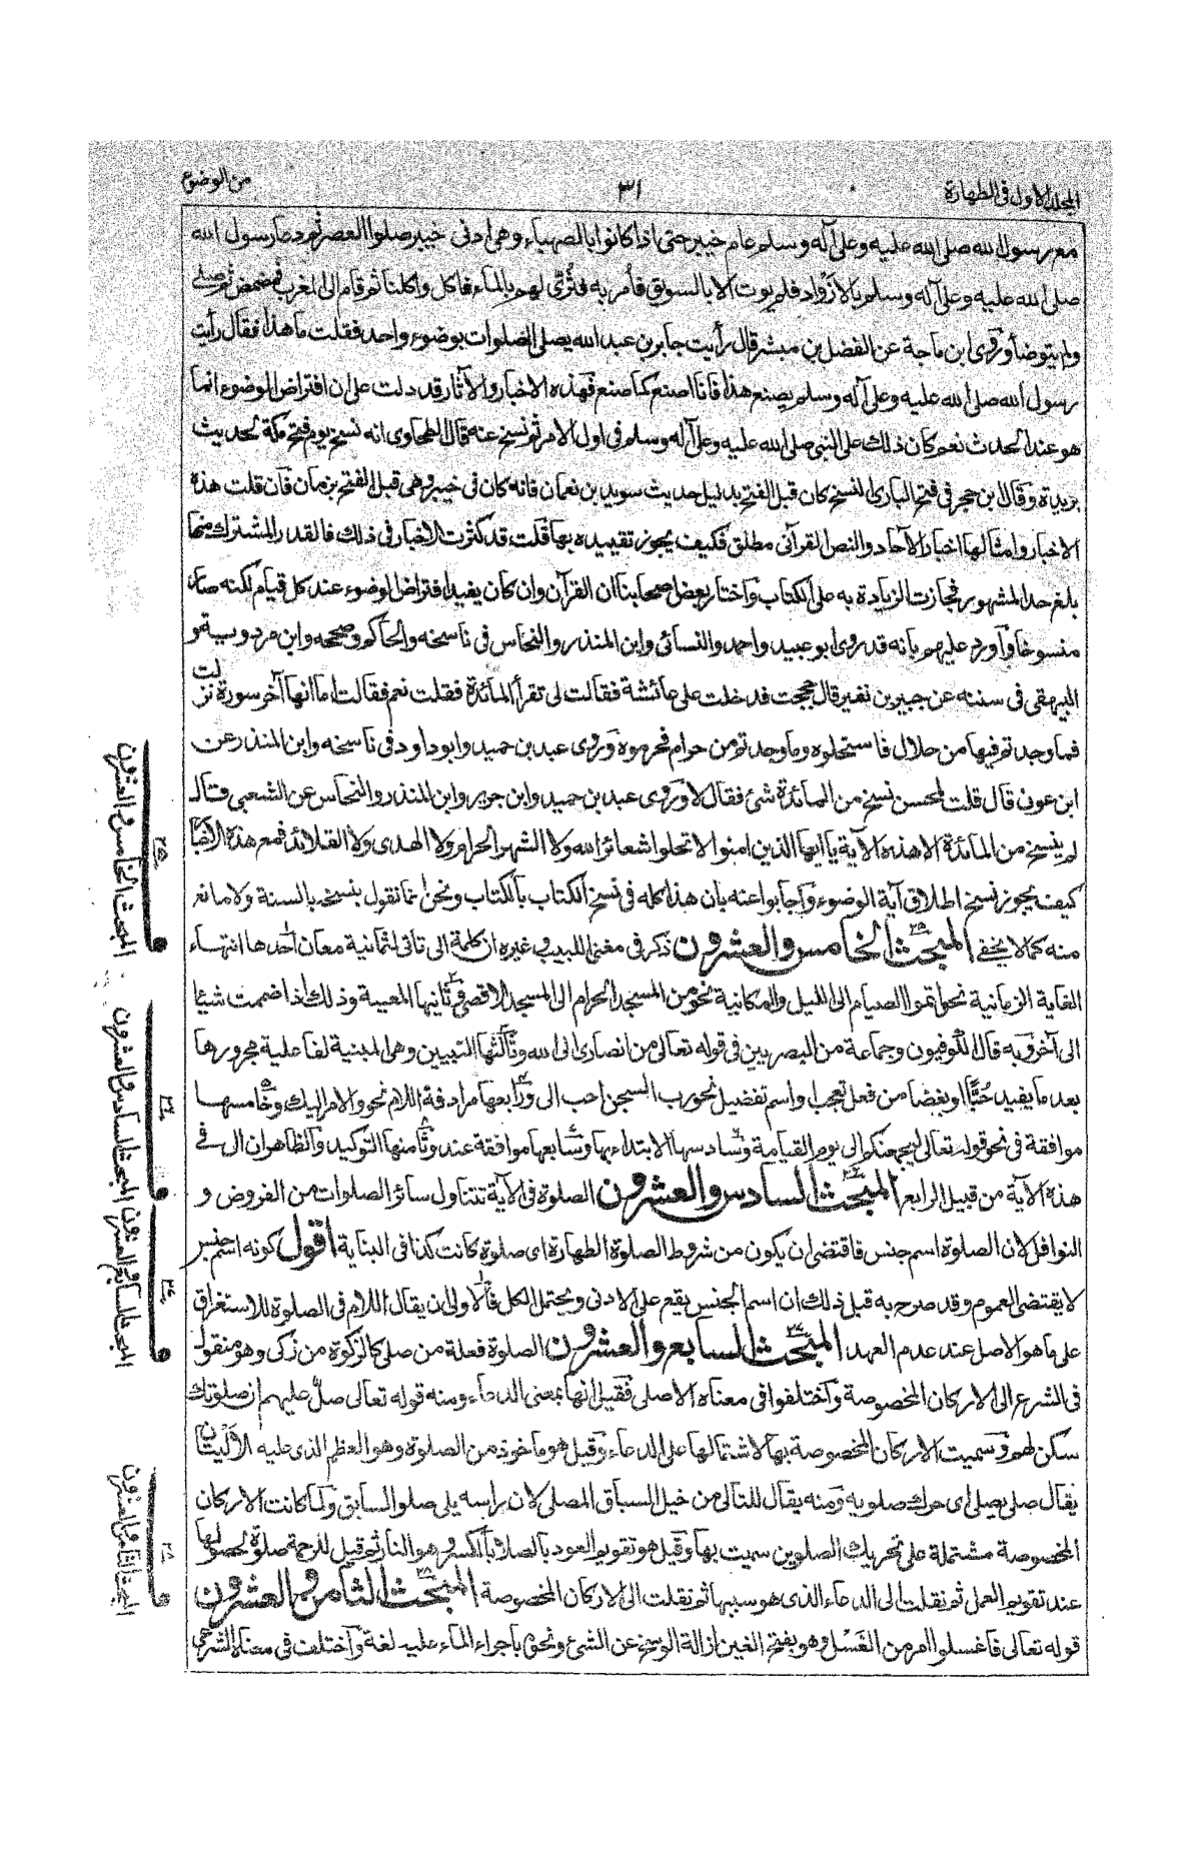 المجلد الاول فى الطهارة
٣١
من الوضوء
مع رسول الله صلى الله عليه وعلى آله وسلم عام خيبر حتى اذا كانوا بالصهباء وهى ادنى خيبر صلوا العصر ثم دعا رسول الله
صلى الله عليه وعلى آله وسلم بالازواد فلم يوت الا بالسويق فأمر به فثرى لهم بالماء فاكل واكلنا ثم قام الى المغرب فمضمض ثم صلى
ولم يتوضأ وروى ابن ماجة عن الفضل بن مبشر قال رأيت جابر بن عبد الله يصلى الصلوات بوضوء واحد فقلت ما هذا فقال رأيت
رسول الله صلى الله عليه وعلى آله وسلم يصنع هذا فانا اصنع كما صنع فهذه الاخبار والآثار قد دلت على ان افتراض الوضوء انما
هو عند الحدث نعم كان ذلك على النبى صلى الله عليه وعلى آله وسلم فى اول الامر ثم نسخ عنه قال الطحاوى انه نسخ يوم فتح مكة لحديث
بريدة وقال ابن حجر فى فتح البارى النسخ كان قبل الفتح بدليل حديث سويد بن نعمان فانه كان فى خيبر وهى قبل الفتح بزمان فان قلت هذه
الاخبار وامثالها اخبار الآحاد والنص القرآنى مطلق فكيف يجوز تقييده بها قلت قد كثرت الاخبار فى ذلك فالقدر المشترك منها
بلغ حد المشهور فجازت الزيادة به على الكتاب واختار بعض اصحابنا ان القرآن وان كان يفيد افتراض الوضوء عند كل قيام لكنه صار
منسوخا واورد عليهم بانه قد روى ابو عبيد واحمد والنسائى وابن المنذر والنحاس فى ناسخه والحاكم وصححه وابن مردويه و
البيهقى فى سننه عن جبير بن نفير قال حججت فدخلت على عائشة فقالت لى تقرأ المائدة فقلت نعم فقالت اما انها آخر سورة نزلت
فما وجدتم فيها من حلال فاستحلوه وما وجدتم من حرام فحرموه وروى عبد بن حميد وابو داود فى ناسخه وابن المنذر عن
ابن عون قال قلت للحسن نسخ من المائدة شئ فقال لا وروى عبد بن حميد وابن جرير وابن المنذر والنحاس عن الشعبى قال
لم ينسخ من المائدة الا هذه الآية يا ايها الذين امنوا لا تحلوا شعائر الله ولا الشهر الحرام ولا الهدى ولا القلائد فمع هذه الاخبار
كيف يجوز نسخ اطلاق آية الوضوء واجابوا عنه بان هذا كله فى نسخ الكتاب بالكتاب ونحن انما نقول بنسخه بالسنة ولا مانع
منه كما لا يخفى المبحث الخامس والعشرون ذكر فى مغنى اللبيب وغيره ان كلمة الى تاتى لثمانية معان احدها انتهاء
الغاية الزمانية نحو اتموا الصيام الى الليل والمكانية نحو من المسجد الحرام الى المسجد الاقصى وثانيها المعية وذلك اذا ضممت شيئا
الى آخر وبه قال الكوفيون وجماعة من البصريين فى قوله تعالى من انصارى الى الله وثالثها التبيين وهى المبنية لفاعلية مجرورها
بعد ما يفيد حبا او بغضا من فعل تعجب او اسم تفضيل نحو رب السجن احب الى ورابعها مرادفة اللام نحو والامر اليك وخامسها
موافقة فى نحو قوله تعالى ليجمعنكم الى يوم القيامة وسادسها الابتداء بها وسابعها موافقة عند وثامنها التوكيد والظاهر ان الى فى
هذه الآية من قبيل الرابع المبحث السادس والعشرون الصلوة فى الآية تتناول سائر الصلوات من الفروض و
النوافل لان الصلوة اسم جنس فاقتضى ان يكون من شروط الصلوة الطهارة اى صلوة كانت كذا فى البناية اقول كونه اسم جنس
لا يقتضى العموم وقد صرح به قبل ذلك ان اسم الجنس يقع على الادنى ويحتمل الكل فالاولى ان يقال اللام فى الصلوة للاستغراق
على ما هو الاصل عند عدم العهد المبحث السابع والعشرون الصلوة فعلة من صلى كالزكوة من زكى وهو منقول
فى الشرع الى الاركان المخصوصة واختلفوا فى معناه الاصلى فقيل انها بمعنى الدعاء ومنه قوله تعالى صل عليهم ان صلوتك
سكن لهم وسميت الاركان المخصوصة بها لاشتمالها على الدعاء وقيل هو ماخوذ من الصلوة وهو العظم الذى عليه الاليتان
يقال صلى يصلى اى حرك صلويه ومنه يقال للتالى من خيل السباق المصلى لان راسه يلى صلو السابق ولما كانت الاركان
المخصوصة مشتملة على تحريك الصلوين سميت بها وقيل هو تقويم العود بالصلا بالكسر وهو النار ثم قيل للرحمة صلوة لحصولها
عند تقويم العمل ثم نقلت الى الدعاء الذى هو سببها ثم نقلت الى الاركان المخصوصة المبحث الثامن والعشرون
قوله تعالى فاغسلوا امر من الغسل وهو بفتح الغين ازالة الوسخ عن الشئ ونحوه باجراء الماء عليه لغة واختلف فى معناه الشرعى
المبحث الخامس والعشرون
٢٥
المبحث السادس والعشرون
٢٦
المبحث السابع والعشرون
٢٧
المبحث الثامن والعشرون
٢٨